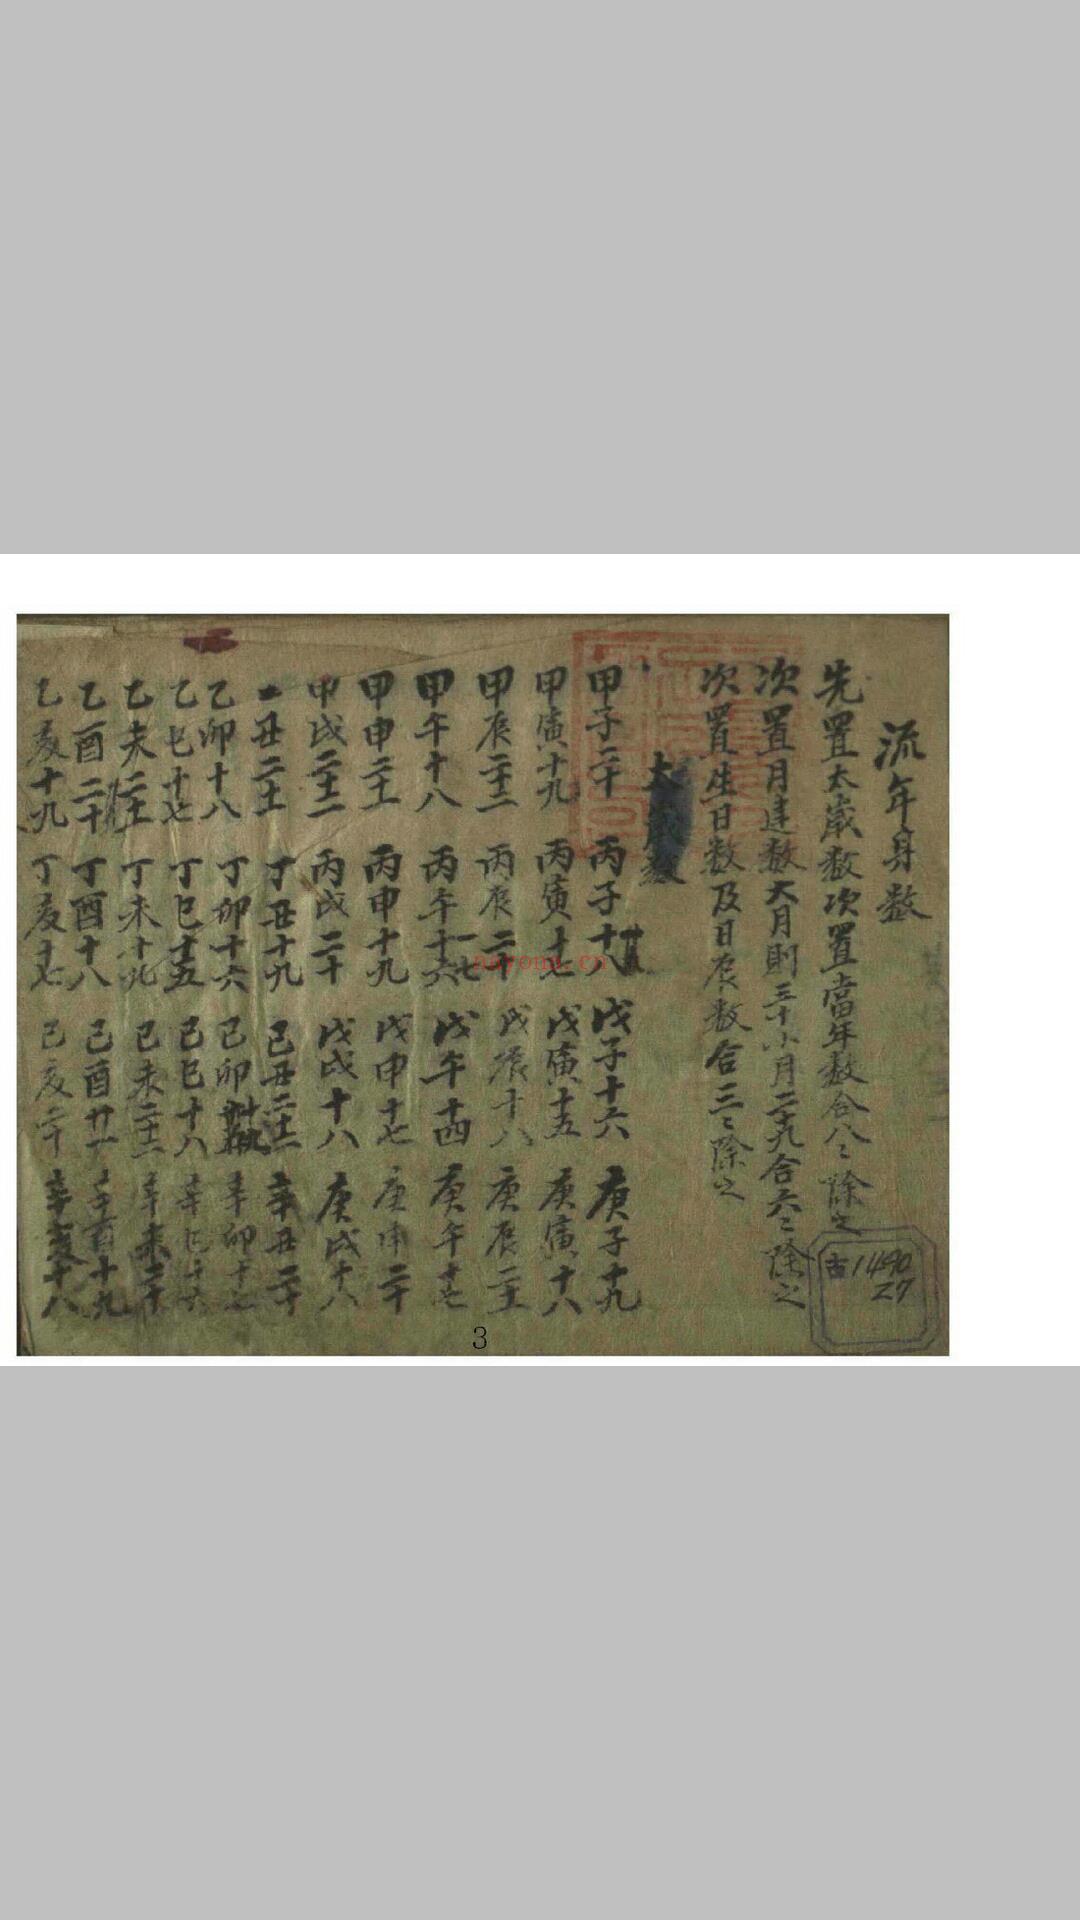 流年身數
先置太歲数次置當年数合八〻除之
次置月建数大月則三十小月二十九合六〻除之
次置生日数及日辰数合三〻除之
太歲数
甲子二十 丙子十八 戊子十六 庚子十九
甲寅十九 丙寅十七 戊寅十五 庚寅十八
甲辰二十二 丙辰二十 戊辰十八 庚辰二十一
甲午十八 丙午十六 戊午十四 庚午十七
甲申二十一 丙申十九 戊申十七 庚申二十
甲戌二十二 丙戌二十 戊戌十八 庚戌十八
丑二十一 丁丑十九 己丑二十二 辛丑二十
乙卯十八 丁卯十六 己卯 辛卯十七
乙巳十七 丁巳十五 己巳十八 辛巳十六
乙未二十一 丁未十九 己未二十二 辛未二十
乙酉二十 丁酉十八 己酉廿一 辛酉十九
乙亥十九 丁亥十七 己亥二十 辛亥十八
古1490
27
nayona.cn
3